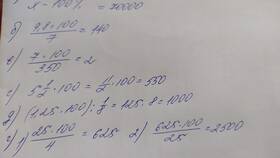 x - 100% = 70000
б) 9,8 · 100 / 7 = 140
в) 7 · 100 / 350 = 2
г) 5 1/2 · 100 = 11/2 · 100 = 550
д) (1,25 · 100) : 1/8 = 125 · 8 = 1000
1) 25 · 100 / 4 = 625 2) 625 · 100 / 25 = 2500